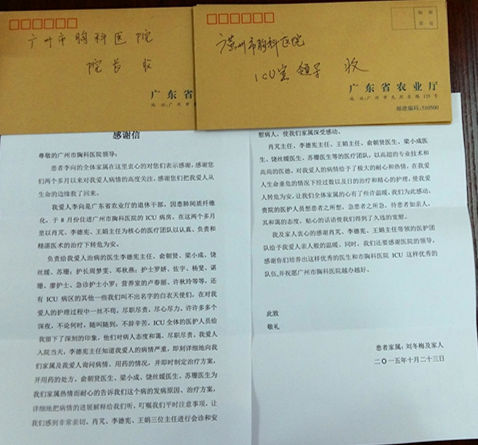 广州市胸科医院
院长 收
广东省农业厅
广州市胸科医院
ICU室 领导 收
广东省农业厅
邮政编码:510500
感谢信
尊敬的广州市胸科医院领导:
患者李向的全体家属在这里衷心的对您们表示感谢,感谢您
们两个多月以来对我爱人病情的高度关注,感谢您们把我爱人从
生命的边缘救了回来。
我爱人李向是广东省农业厅的退休干部,因患肺间质纤维
化,于8月份住进广州市胸科医院的ICU病房,在这两个多月
里以肖芃、李德宪、王娟主任为核心的医疗团队以认真、负责和
精湛医术的治疗下转危为安。
负责给我爱人治病的医生李德宪主任、俞朝贤、梁小成、饶
丝媛、苏珊;护长周梦雯、邓秋燕;护士罗妍、
廖护士、急诊护士小罗;营养室的卢春丽、许秋玲等等,还
有ICU病区的其他一些我们叫不出名字的白衣天使们,在对我
爱人的护理过程中一丝不苟,尽职尽责,尽心尽力,许许多多个
深夜,不论何时,随叫随到,不辞辛苦。ICU全体的医护人员给
我留下了深刻的印象,他们对病人态度和蔼、尽职尽责,我爱人
入院当天,李德宪主任知道我爱人的病情严重,即刻详细地向我
们家属及我爱人询问病情、用药的情况,并即时制定治疗方案,
开用药的处方,俞朝贤医生、梁小成、饶丝媛医生、苏珊医生为
我们家属热情而耐心的告诉我们这个病的发病原因、治疗方案,
详细地把病情的进展解释给我们听,叮嘱我们平时注意事项,让
我们感到非常亲切。肖芃、李德宪、王娟三位主任进行会诊和安
慰病人,使我们家属深受感动。
肖芃主任、李德宪主任、王娟主任、俞朝贤医生、梁小成医
生、饶丝媛医生、苏珊医生等的医疗团队,以高超的专业技术和
高尚的医德,对我爱人的病情给予了极大的耐心和热情,在我爱
人生命垂危的情况下经过数以及日的治疗和精心的护理,使我爱
人转危为安,让我们全体家属的心有了些许温暖,我们为此感动,
贵院的医护人员想患者之所想,急患者之所急、待患者如亲人,
其和蔼的态度、贴心的话语使我们得到了久违的宽慰。
我及家人衷心的感谢肖芃、李德宪、王娟主任等带领的医护团
队给予我爱人亲人般的温暖,同时,我们还要感谢医院的领导,
感谢你们培养出这样优秀的医生和市胸科医院ICU这样优秀的
队伍,并祝愿广州市胸科医院越办越好。
此致
敬礼
患者家属:刘冬梅及家人
二〇一五年十月二十三日